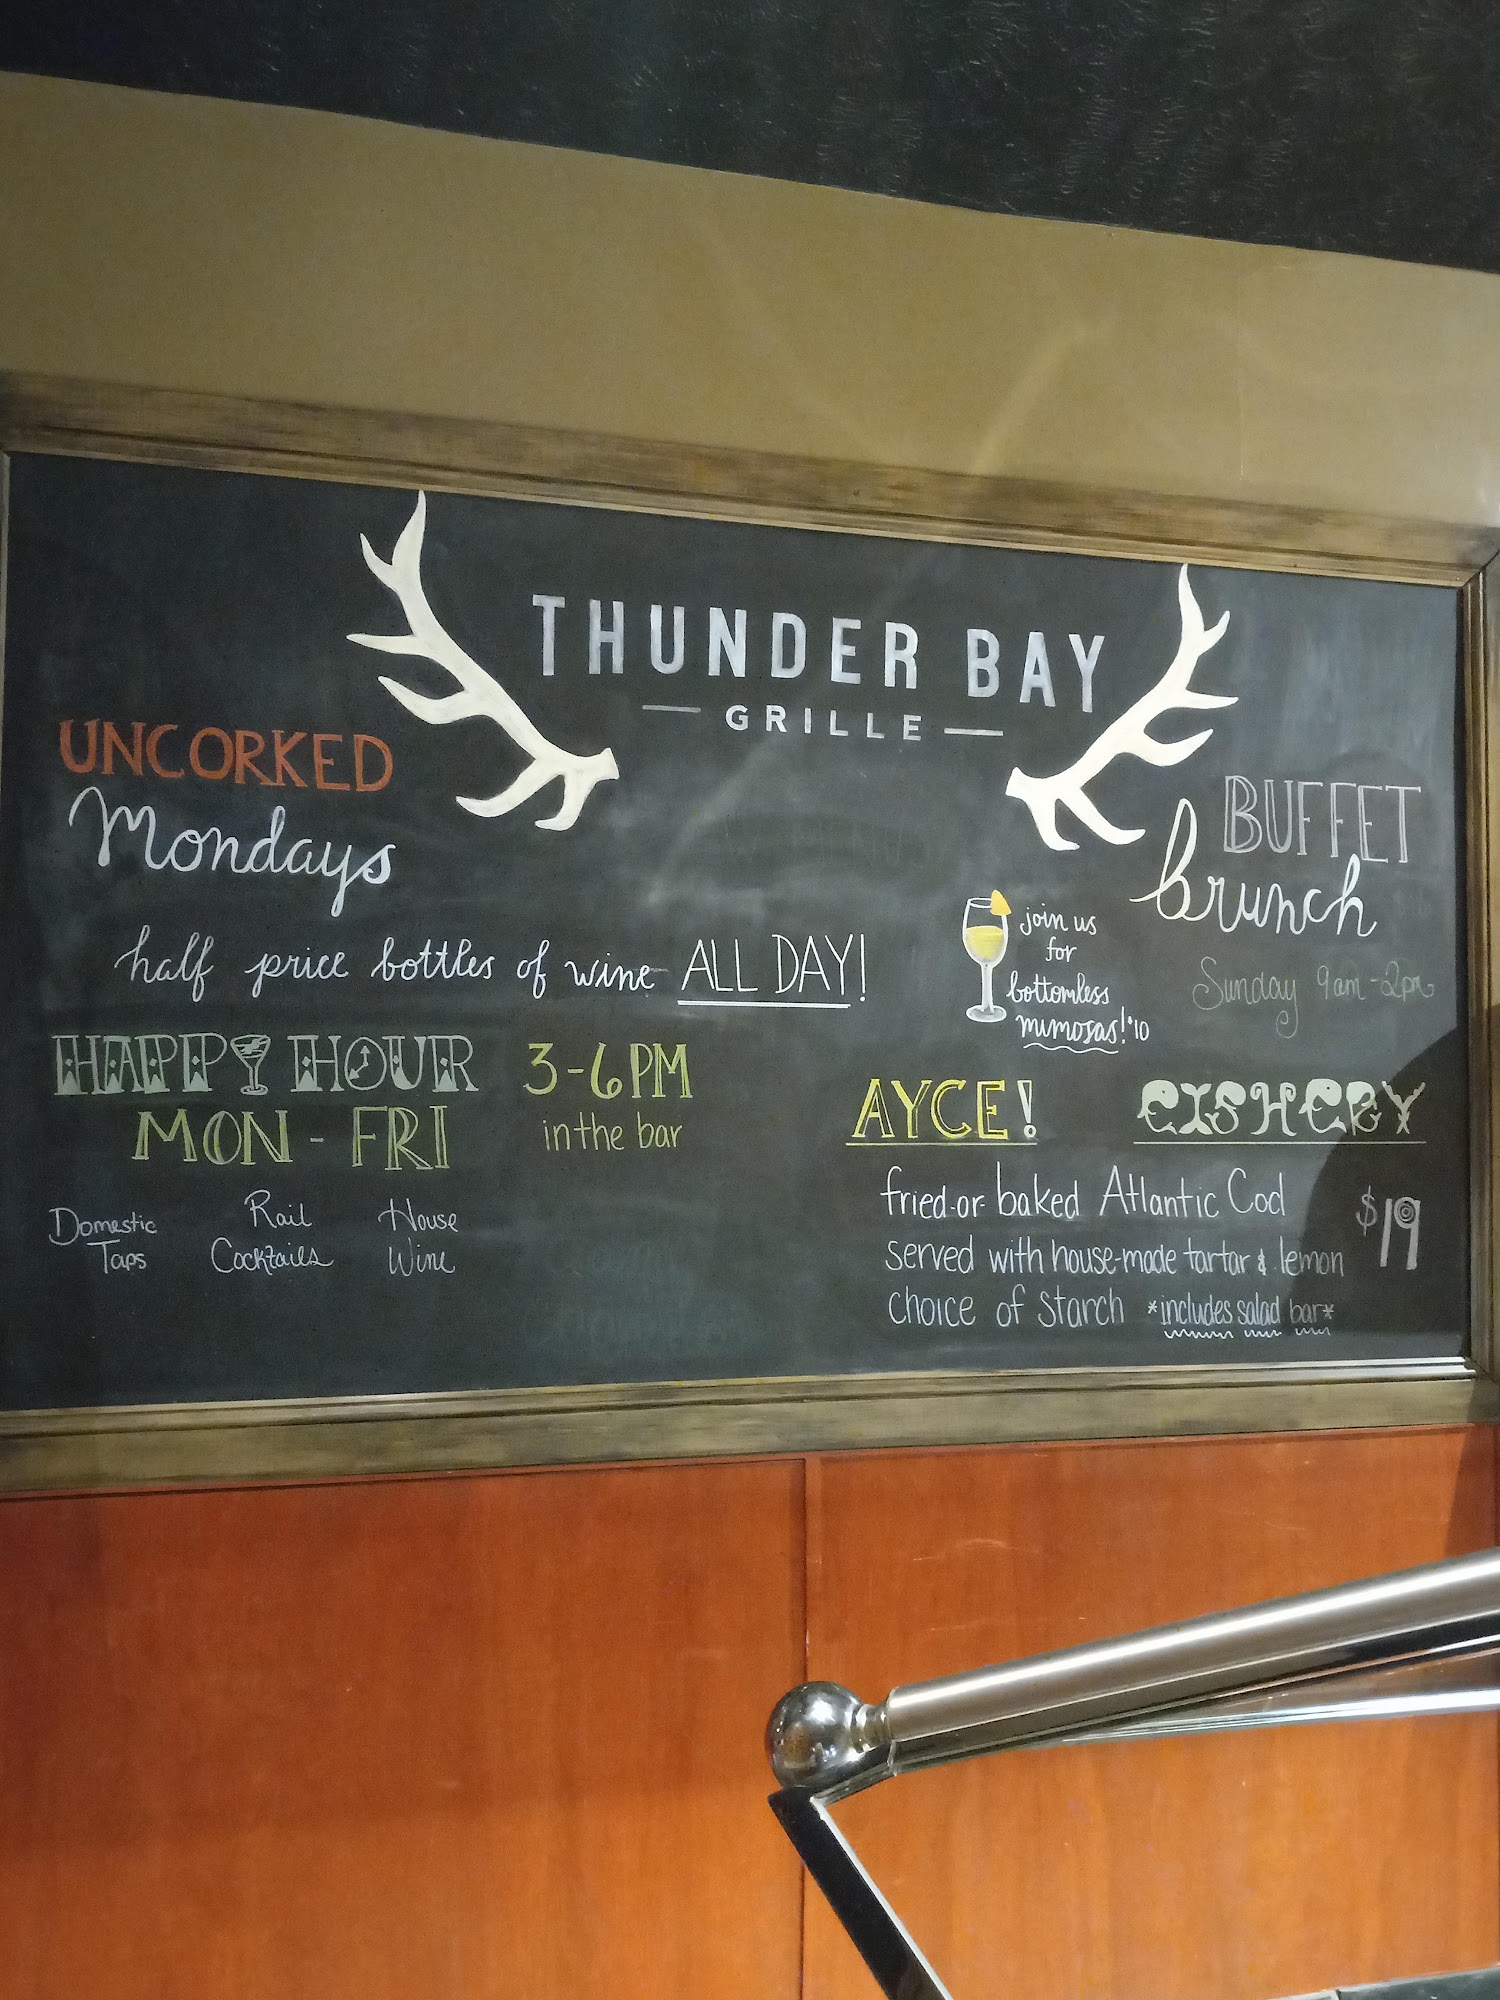 THUNDER BAY
GRILLE
UNCORKED
Mondays
half price bottles of wine ALL DAY!
HAPPY HOUR 3-6PM
MON - FRI in the bar
Domestic
Taps
Rail
Cocktails
House
Wine
BUFFET
brunch
Sunday 9am-2pm
join us
for
bottomless
mimosas! $10
AYCE!
fried-or-baked Atlantic Cod
served with house-made tartar & lemon
choice of starch *includes salad bar*
$19